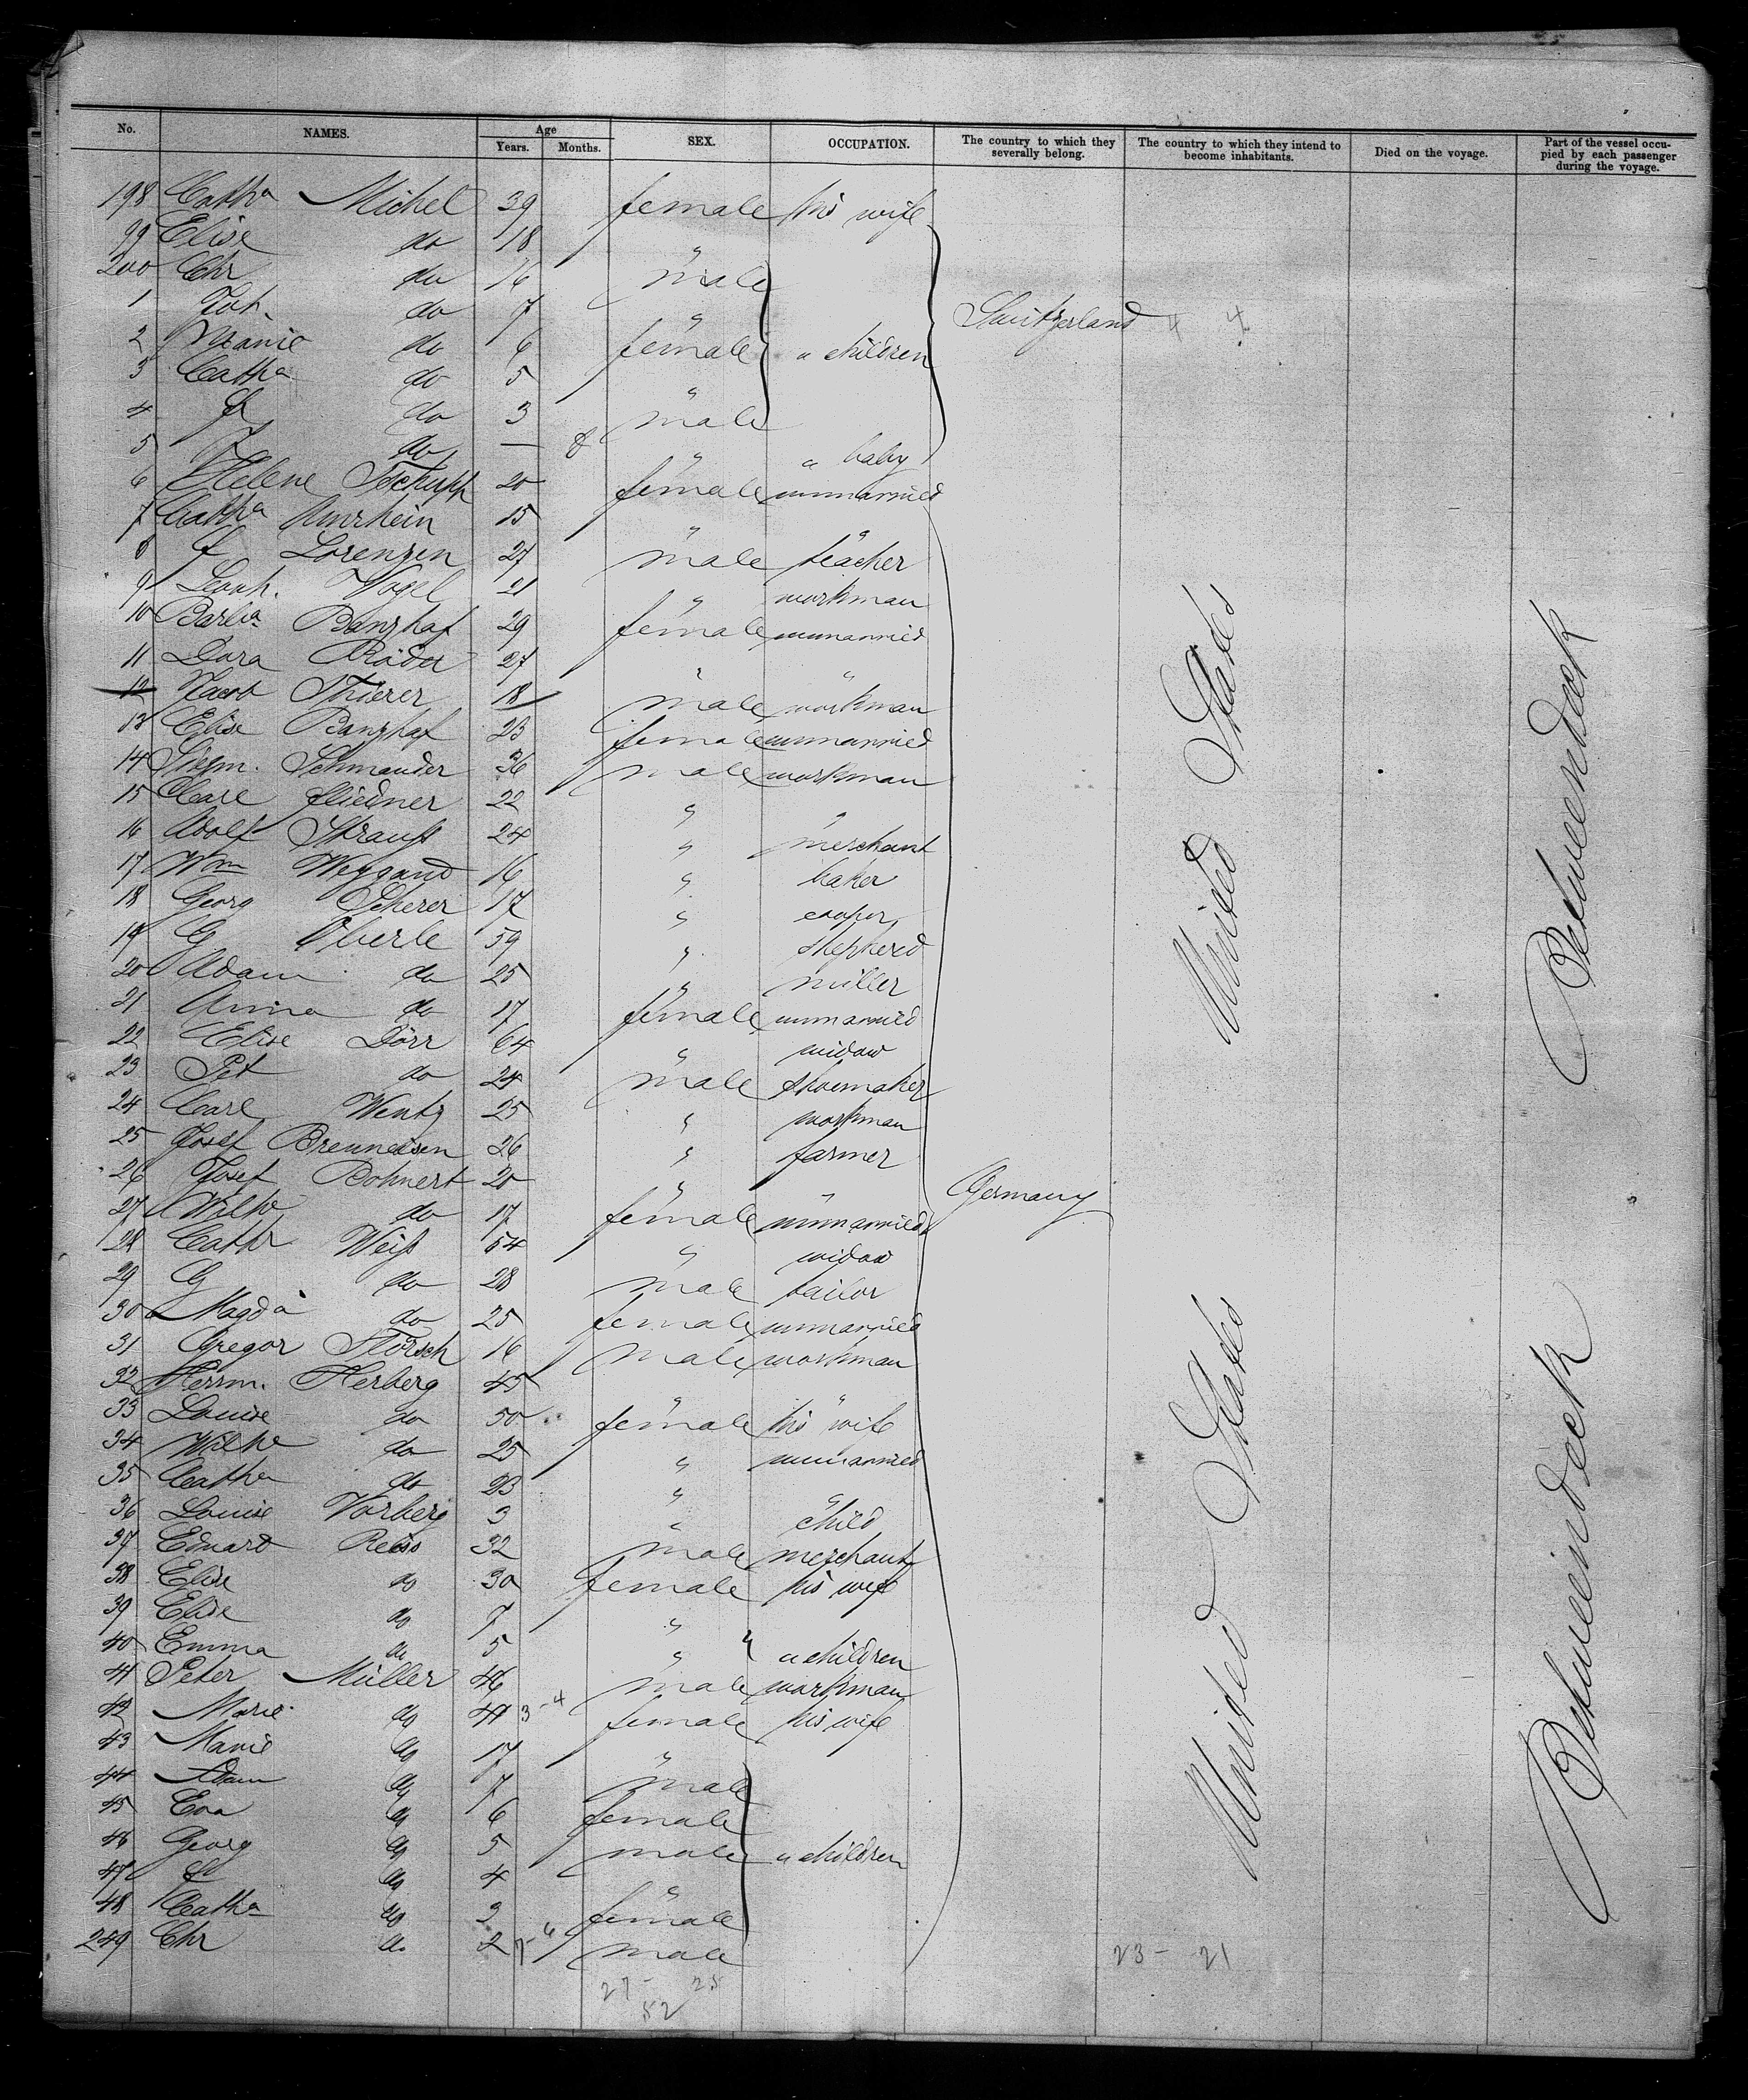 No. NAMES. Age Years. Months. SEX. OCCUPATION. The country to which they severally belong. The country to which they intend to become inhabitants. Died on the voyage. Part of the vessel occupied by each passenger during the voyage.
198 Catha Michel 39 female his wife
99 Elise do 18 "
200 Chr do 16 male
1 Joh. do 7 " Switzerland
2 Manie do 6 female " children
3 Catha do 5 "
4 J do 3 male
5 J do — 8 " " baby
6 Helene Tschupp 20 female unmarried
7 Catha Amrhein 15 " "
8 J Lorenzen 27 male teacher
9 Leonh. Vogel 21 " workman
10 Barba Banzhaf 29 female unmarried
11 Dora Röder 27 " "
12 Jacob Thierer 18 male workman
13 Elise Banzhaf 23 female unmarried
14 Siegm. Schmauder 36 male workman
15 Carl Fliedner 22 " "
16 Adolf Strauß 24 " merchant
17 Wm Weygand 16 " baker
18 Georg Scherer 17 " cooper
19 G Oberle 59 " shepherd
20 Adam do 25 " miller
21 Anna do 17 female unmarried
22 Elise Dörr 64 " widow
23 Pet do 24 male shoemaker
24 Carl Wentz 25 " workman
25 Josef Breuneisen 26 " farmer
26 Josef Bohnert 20 " " Germany
27 Wilhe do 17 female unmarried
28 Cathr Weiß 54 " widow
29 G do 28 male tailor
30 Magda do 25 female unmarried
31 Gregor Störsch 16 male workman
32 Herrm. Herberg 45 " "
33 Louise do 50 female his wife
34 Wilhe do 25 " unmarried
35 Catha do 23 " "
36 Louise Vorberg 3 " child
37 Eduard Reiss 32 male merchant
38 Elise do 30 female his wife
39 Elise do 7 "
40 Emma do 5 " " children
41 Peter Müller 46 male workman
42 Marie do 41 3-4 female his wife
43 Marie do 17 "
44 Adam do 7 male
45 Eva do 6 female
46 Georg do 5 male " children
47 J do 4 "
48 Catha do 3 female
249 Chr do 2 male
United States
United States
Betweendeck
Betweendeck
23 - 21
27 - 25
52